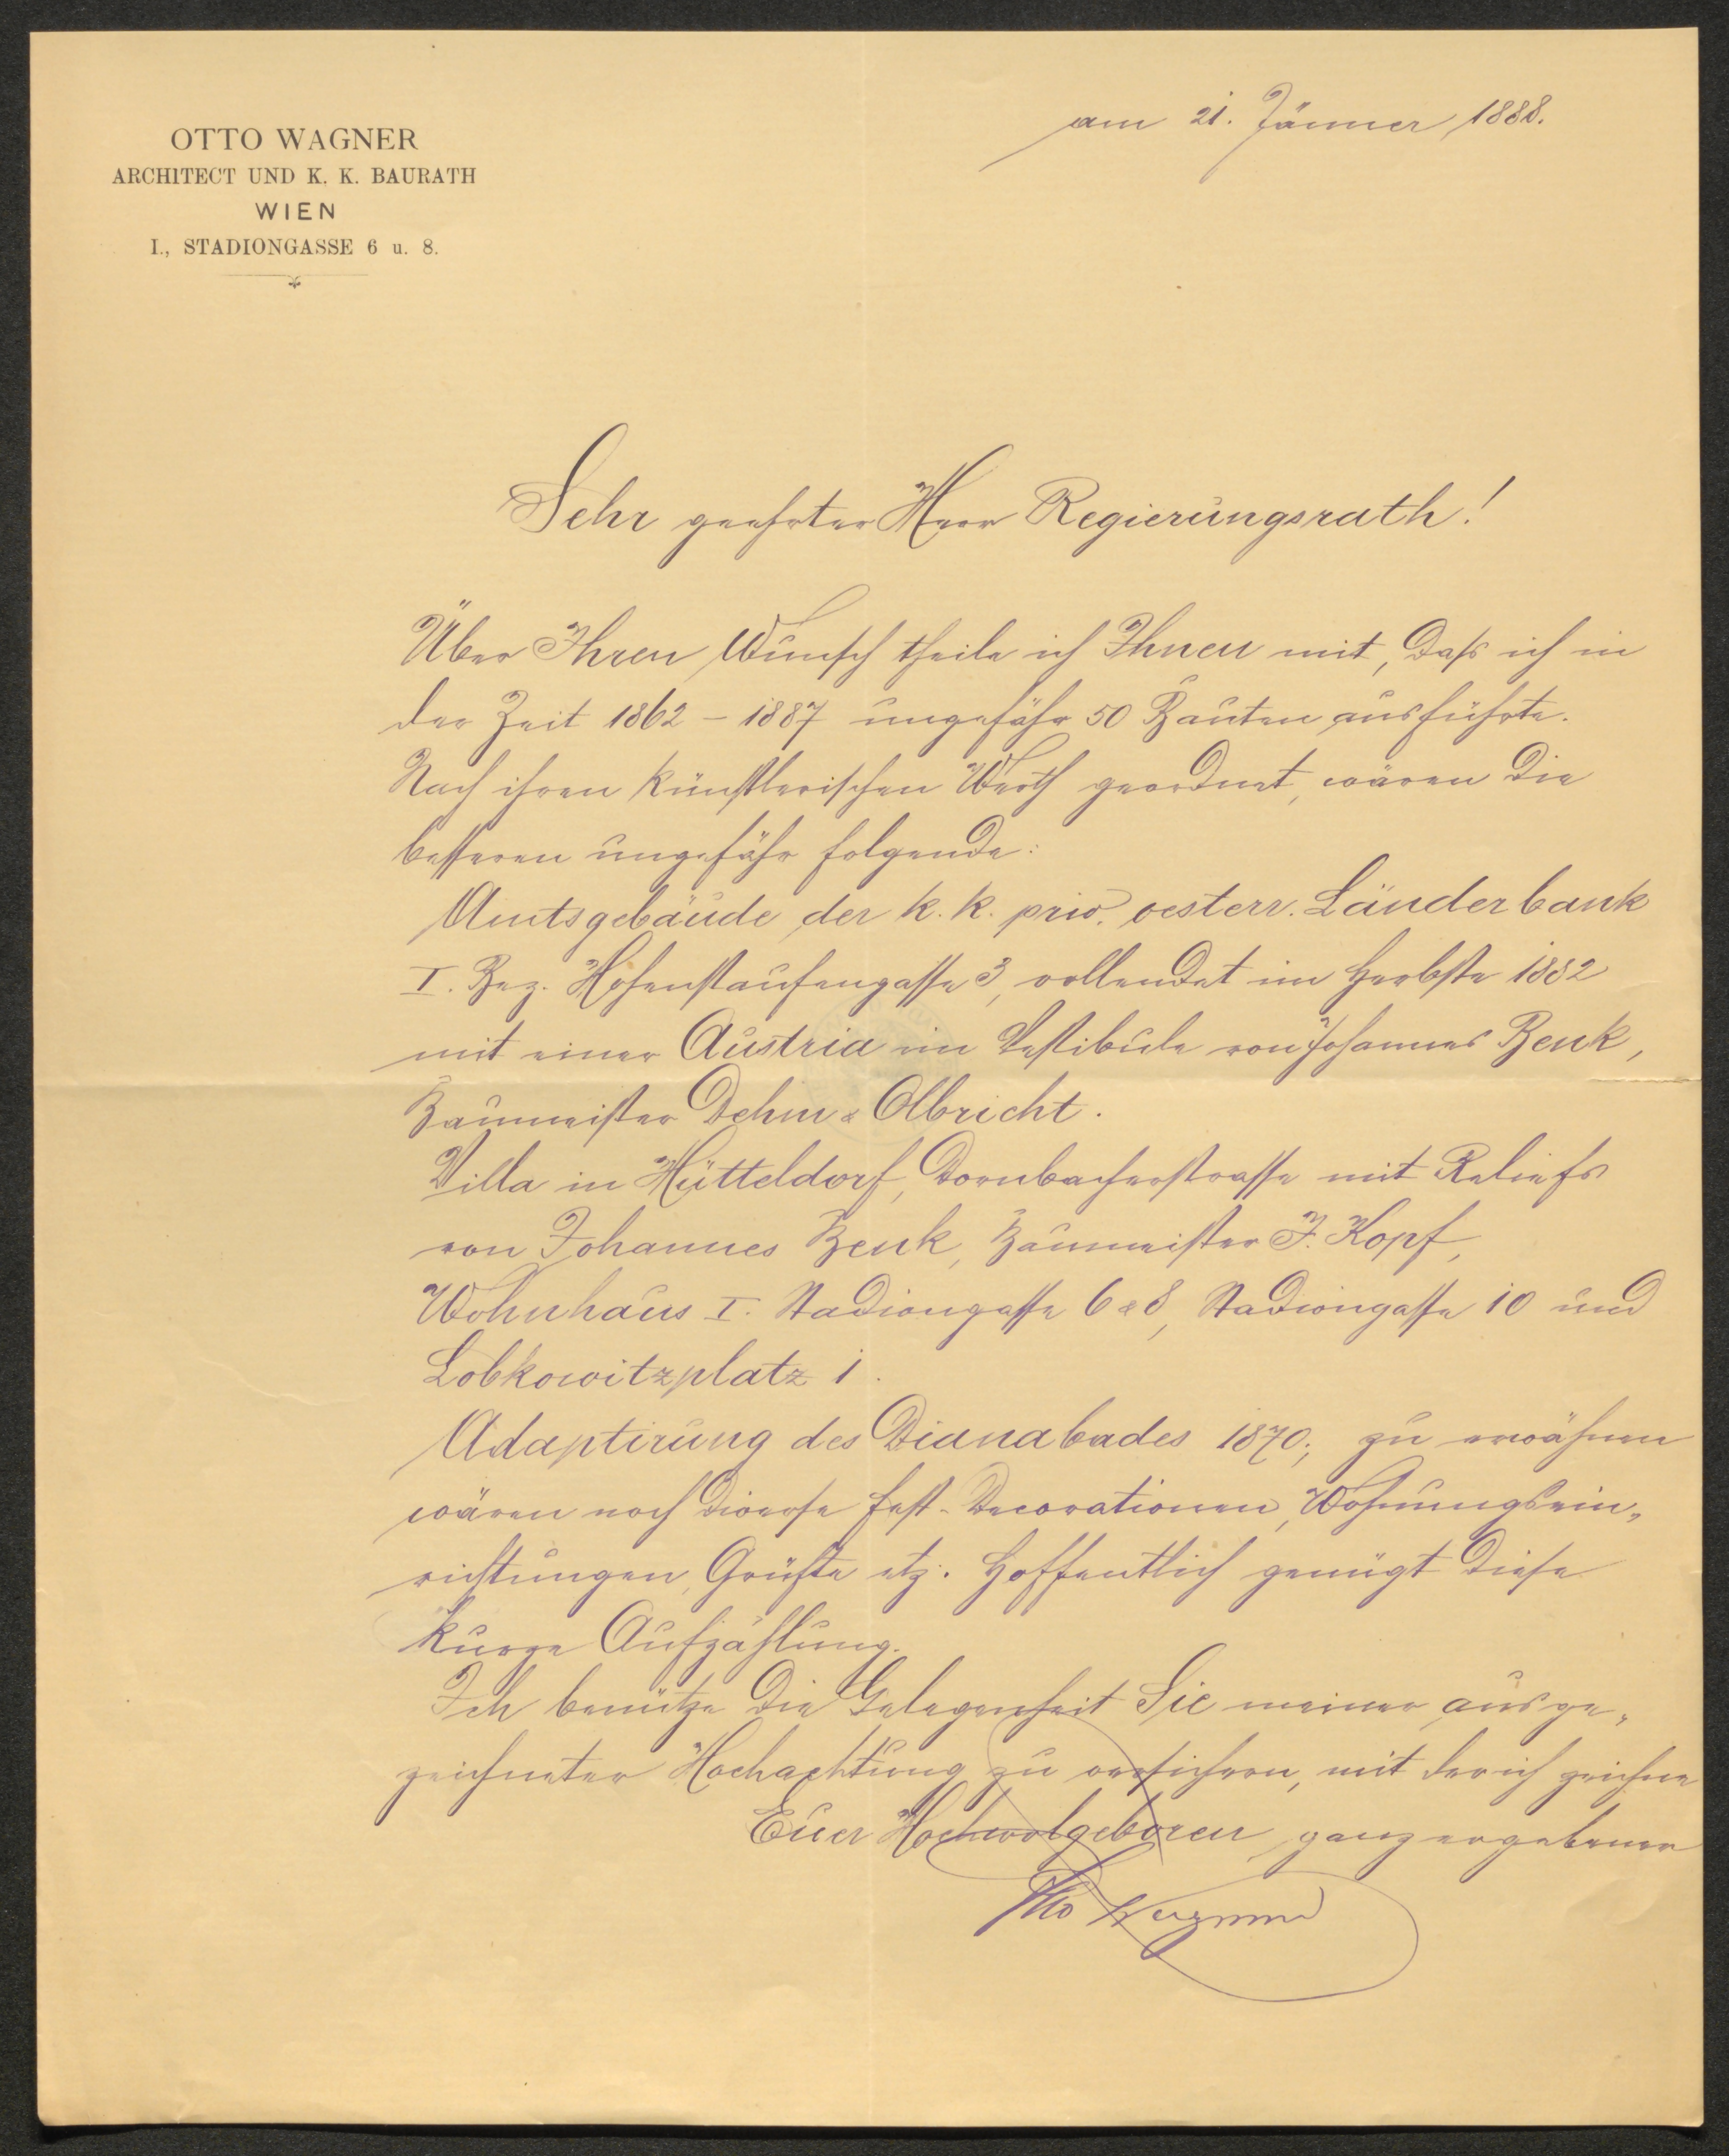 OTTO WAGNER
ARCHITECT UND K. K. BAURATH
WIEN
I., STADIONGASSE 6 u. 8.
am 21. Jänner 1888.
Sehr geehrter Herr Regierungsrath!
Über Ihren Wunsch theile ich Ihnen mit, daß ich in
der Zeit 1862 – 1887 ungefähr 50 Bauten ausführte.
Nach ihren künstlerischen Werth geordnet, wären die
besseren ungefähr folgende:
Amtsgebäude der k. k. priv. oesterr. Länderbank
I. Bez. Hohenstaufengasse 3, vollendet im Herbste 1882
mit einer Austria im Vestibule von Johannes Benk,
Baumeister Dehm & Olbricht.
Villa in Hütteldorf, Dornbacherstrasse mit Reliefs
von Johannes Benk, Baumeister J. Kopf,
Wohnhaus I. Stadiongasse 6 & 8, Stadiongasse 10 und
Lobkowitzplatz 1.
Adaptirung des Dianabades 1870; zu erwähnen
wären noch diverse Fest-Decorationen, Wohnungsein-
richtungen, Grüfte etz. Hoffentlich genügt diese
kurze Aufzählung.
Ich benütze die Gelegenheit Sie meiner ausge-
zeichneter Hochachtung zu versichern, mit der ich zeichne
Euer Hochwolgeboren ganz ergebener
Otto Wagner